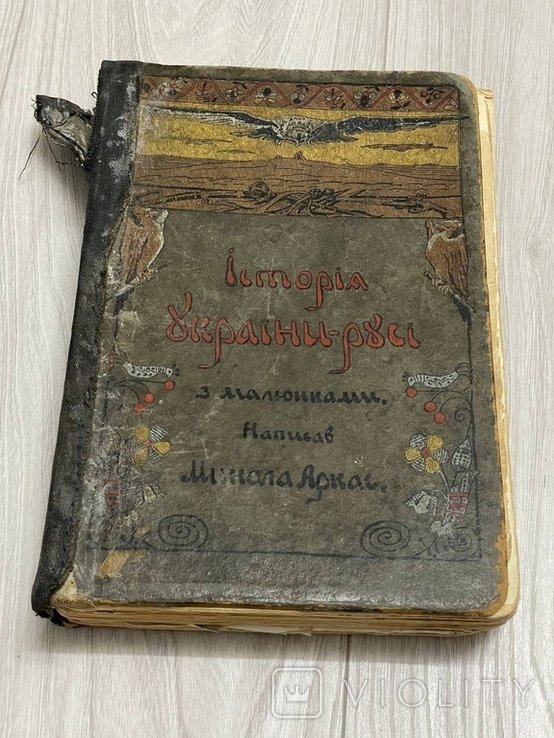 Історія
України-русі
з малюнками.
Написав
Микола Аркас.
VIOLITY